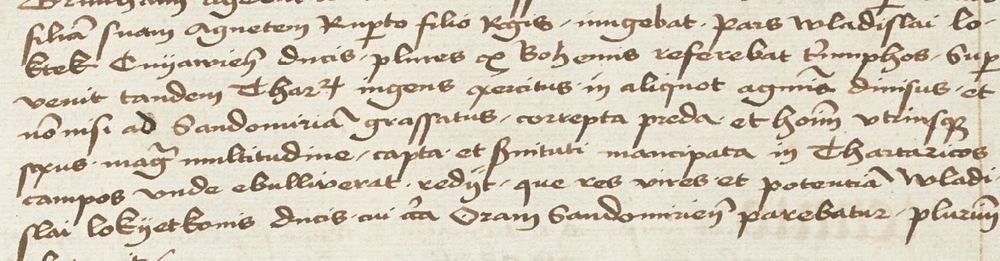 filiã suam Agnetem Rupto filio Rgis · iungebat · Pars Wladislai lo-
ktek Cuyawieñ ducis · plures ex Bohemis referebat triumphos · Sup
venit tandem Thar ingens exercitus · in aliquot agmina diuisus · et
nõ nisi ad Sandomiriã grassatus · correpta preda · et hoim vtriusq
sexus · mag multitudine · capta · et suituti mancipata in Thartaricos
campos vnde ebulliuerat · redijt · que res vires · et potenciã Wladi-
slai lokyetkonis ducis · cui cca Oram Sandomirieñ parebatur · plurim